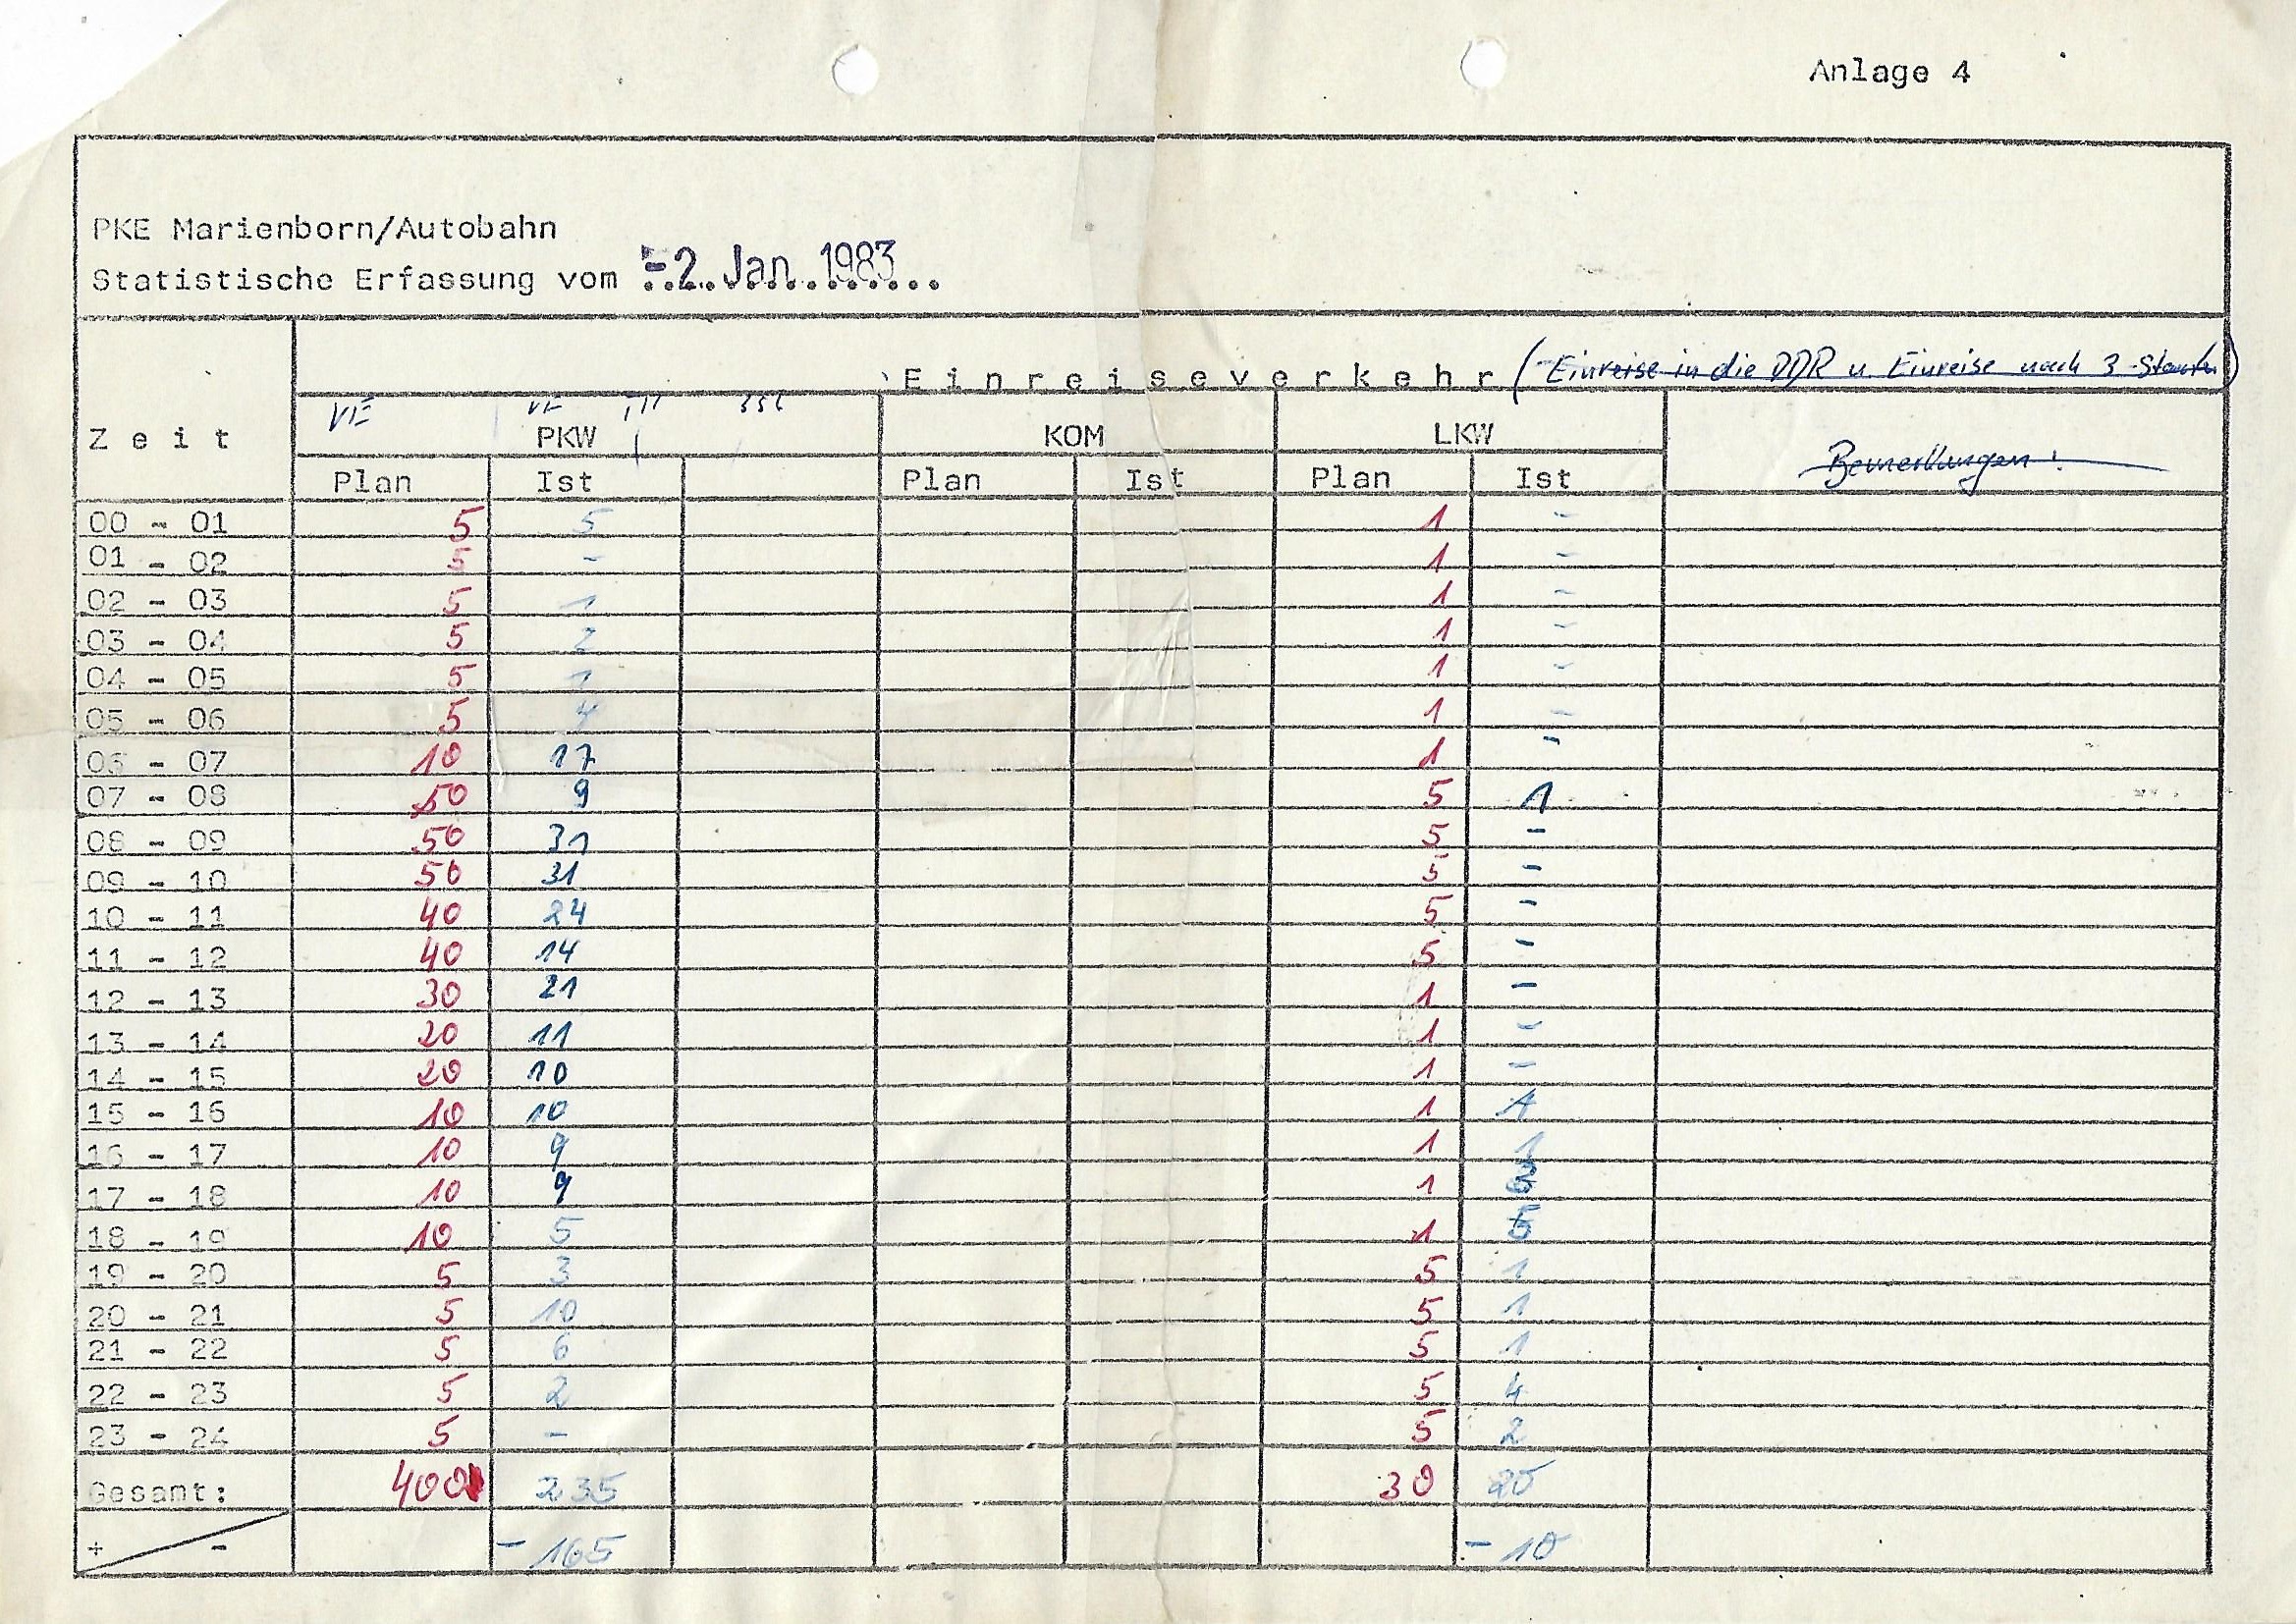 Anlage 4
PKE Marienborn/Autobahn
Statistische Erfassung vom -2. Jan. 1983
Einreiseverkehr (Einreise in die DDR u. Einreise nach 3. Staaten)
VE VE III SSL
Zeit PKW KOM LKW Bemerkungen:
Plan Ist Plan Ist Plan Ist
00 - 01 5 5 1 -
01 - 02 5 - 1 -
02 - 03 5 1 1 -
03 - 04 5 2 1 -
04 - 05 5 1 1 -
05 - 06 5 4 1 -
06 - 07 10 17 1 -
07 - 08 50 9 5 1
08 - 09 50 31 5 -
09 - 10 50 31 5 -
10 - 11 40 24 5 -
11 - 12 40 14 5 -
12 - 13 30 21 1 -
13 - 14 20 11 1 -
14 - 15 20 10 1 -
15 - 16 10 10 1 1
16 - 17 10 9 1 1
17 - 18 10 9 1
18 - 19 10 5 1 5
19 - 20 5 3 5 1
20 - 21 5 10 5 1
21 - 22 5 6 5 1
22 - 23 5 2 5 4
23 - 24 5 - 5 2
Gesamt: 400 235 30 20
+ - -165 -10